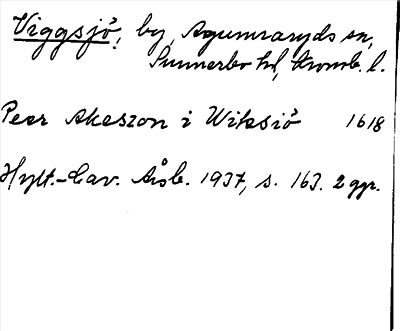 Viggsjö, by, Agunnaryds sn,
Sunnerbo hd, Kronob. l.
Peer Akeszon i Wiksiö 1618
Hylt.-Cav. Årsb. 1937, s. 163. 2 ggr.